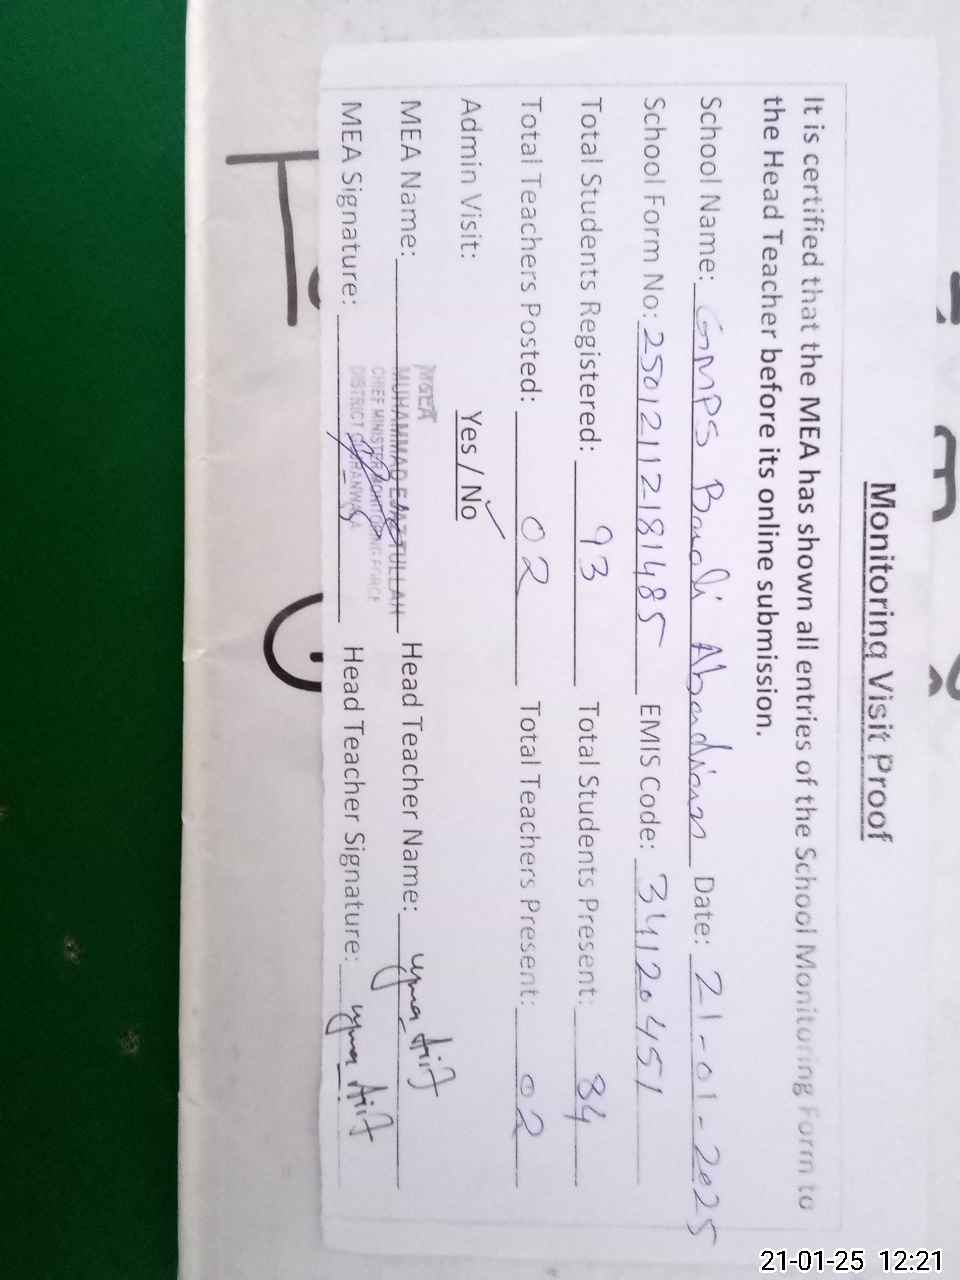 Monitoring Visit Proof
It is certified that the MEA has shown all entries of the School Monitoring Form to
the Head Teacher before its online submission.
School Name: GMPS Date: 21-01-2025
School Form No: 25012112181485 EMIS Code: 34120451
Total Students Registered: 93 Total Students Present: 84
Total Teachers Posted: 02 Total Teachers Present: 02
Admin Visit: Yes / No ✓
MEA Name: MUHAMMAD Head Teacher Name:
CHIEF MINISTER MONITORING FORCE
MEA Signature: DISTRICT Head Teacher Signature:
21-01-25 12:21